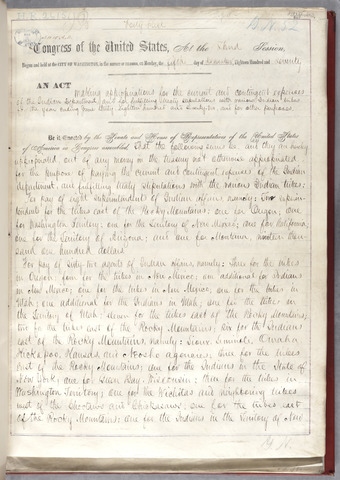 Congress of the United States, At the Third Session,
Begun and held at the CITY OF WASHINGTON, in the District of Columbia, on Monday, the fifth day of December, Eighteen Hundred and seventy
AN ACT
making appropriations for the current and contingent expenses
of the Indian Department, and for fulfilling treaty stipulations with various Indian tribes
the year ending June thirty, eighteen hundred and seventy-two, and for other purposes.
Be it Enacted by the Senate and House of Representatives of the United States
of America in Congress assembled, That the following sums be, and they are hereby
appropriated out of any money in the treasury not otherwise appropriated
for the purpose of paying the current and contingent expenses of the Indian
department, and fulfilling treaty stipulations with the various Indian tribes:
For pay of eight superintendents of Indian affairs, namely: Two superin-
tendents for the tribes east of the Rocky Mountains; one for Oregon; one
for Washington Territory; one for the Territory of New Mexico; one for California;
one for the Territory of Arizona; and one for Montana,
sand one hundred dollars.
For pay of sixty-two agents of Indian affairs, namely: Three for the tribes
in Oregon; four for the tribes in New Mexico; one additional for Indians
in New Mexico; one for the tribes in New Mexico; one for the tribes in
Utah; one additional for the Indians in Utah; one for the tribes in
the Territory of Utah; eleven for the tribes east of the Rocky Mountains;
two for the tribes east of the Rocky Mountains; six for the Indians
east of the Rocky Mountains, namely: Sioux, Seminole, Omaha,
Kickapoo, Kansas, and Neosho agencies; one for the tribes
east of the Rocky Mountains; one for the Indians in the State of
New York; one for Green Bay, Wisconsin; three for the tribes in
Washington Territory; one for the Wichitas and neighboring tribes
west of the Choctaws and Chickasaws; one for the tribes east
of the Rocky Mountains; one for the Indians in the Territory of New